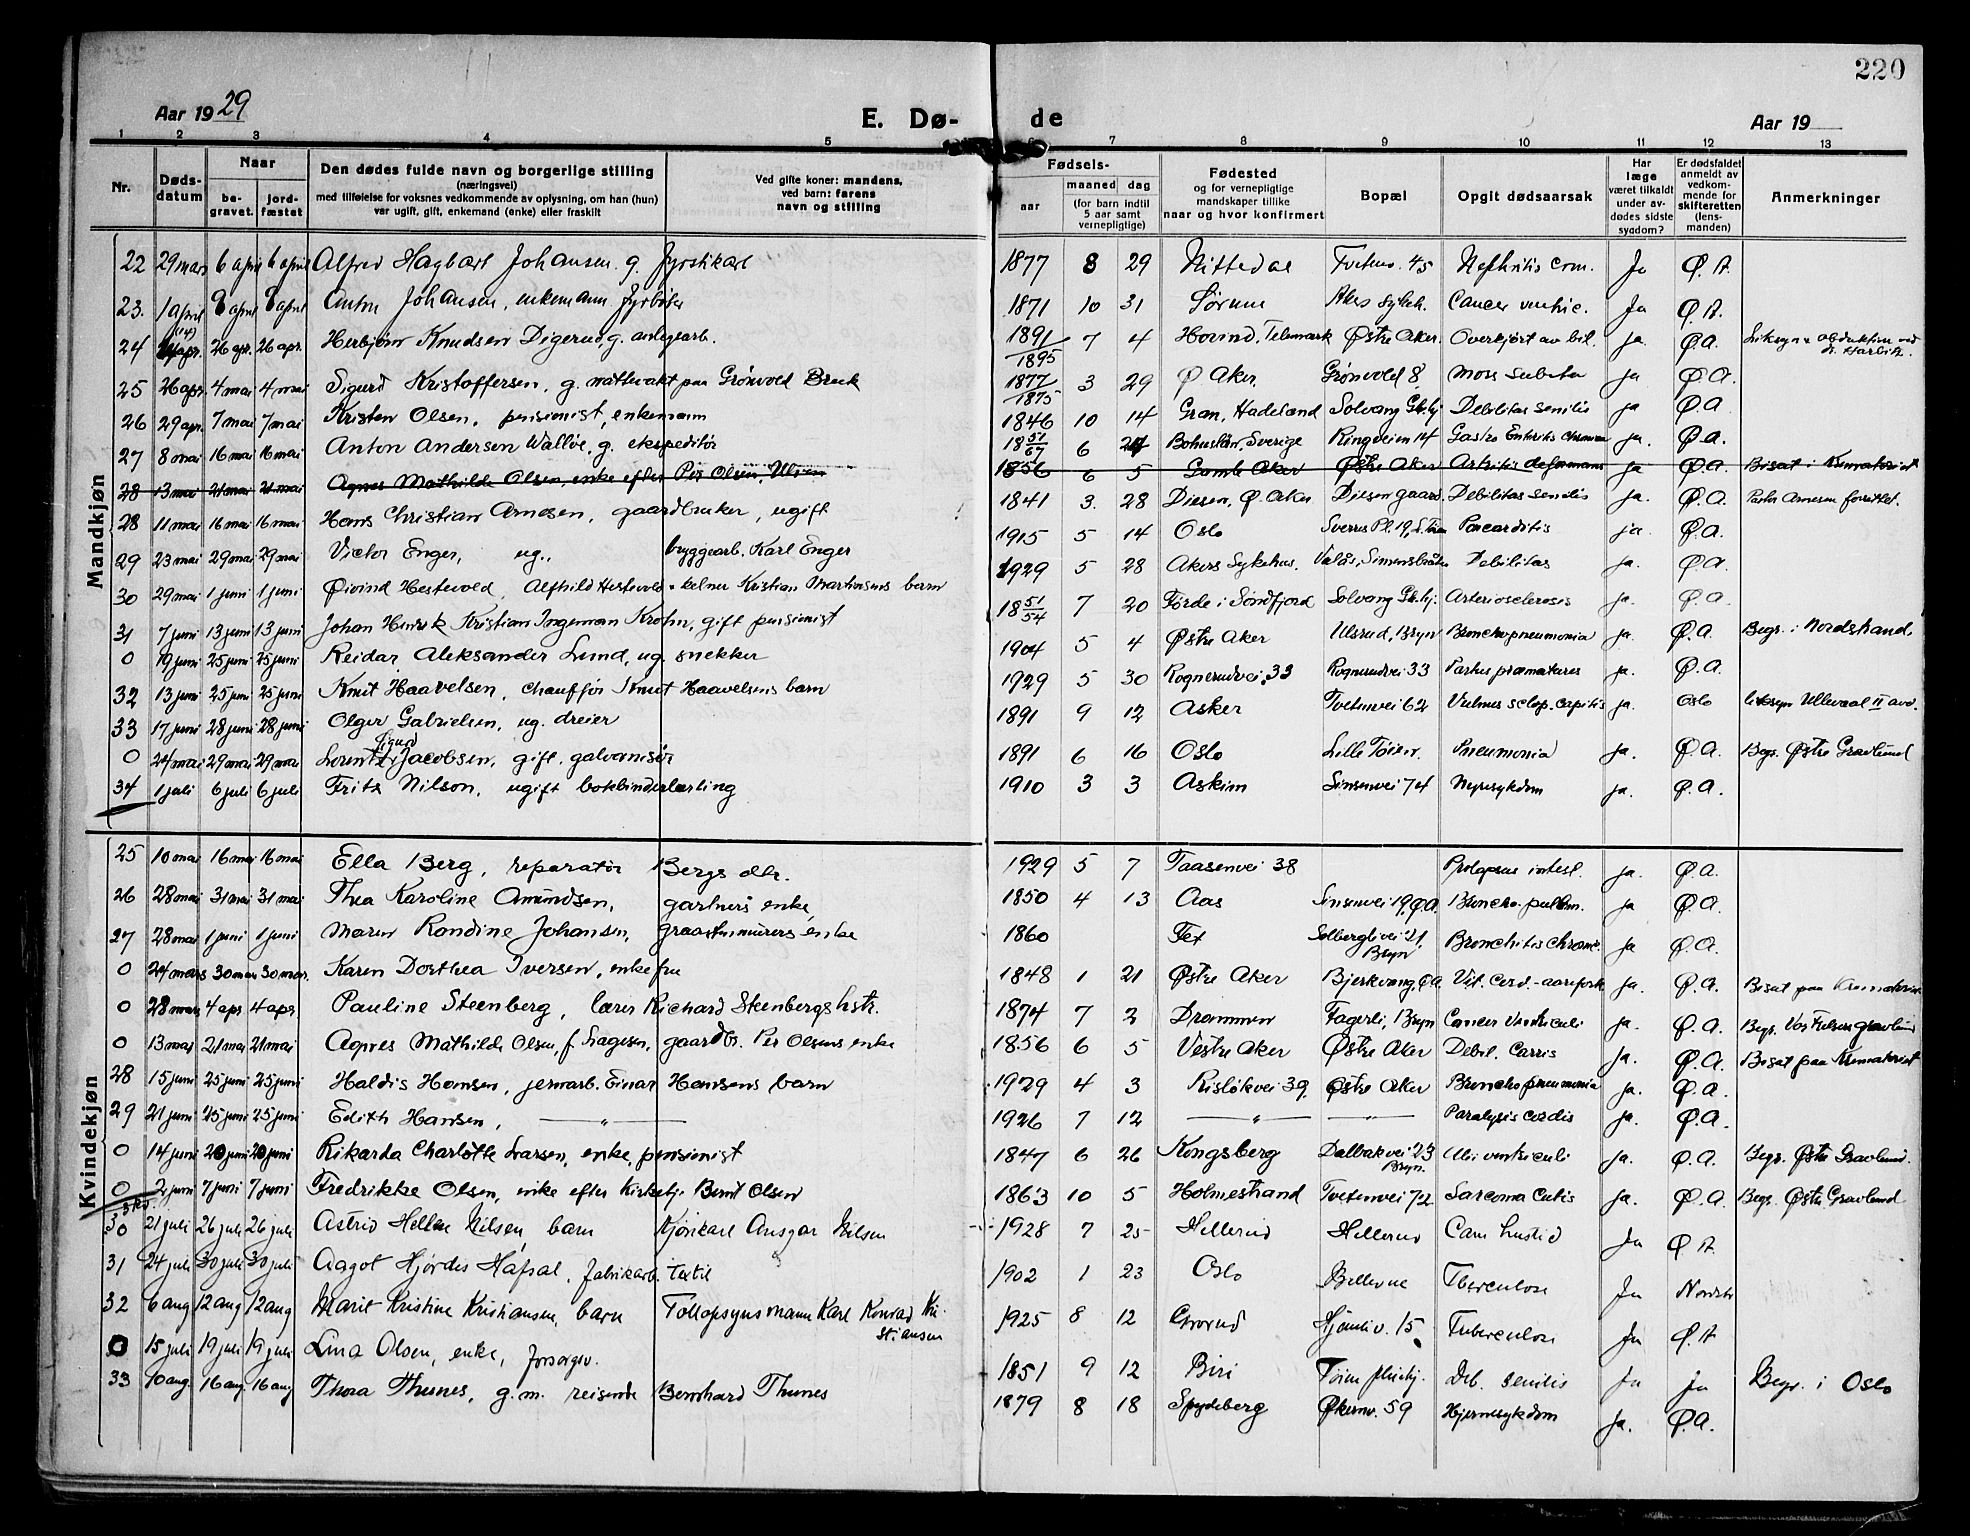 220
Aar 1929 E. Dø- de Aar 19
1 2 3 4 5 6 7 8 9 10 11 12 13
Nr. Døds-datum Naar be-gravet. jord-fæstet Den dødes fulde navn og borgerlige stilling (næringsvei) med tilføielse for voksnes vedkommende av oplysning, om han (hun) var ugift, gift, enkemand (enke) eller fraskilt Ved gifte koner: mandens, ved barn: farens navn og stilling Fødsels- aar maaned dag (for barn indtil 5 aar samt vernepligtige) Fødested og for vernepligtige mandskaper tillike naar og hvor konfirmert Bopæl Opgit dødsaarsak Har læge været tilkaldt under av-dødes sidste sygdom? Er dødsfaldet anmeldt av vedkom-mende for skifteretten (lens-manden) Anmerkninger
Mandkjøn
22 29 mars 6 april 6 april Alfred Hagbart Johansen g. fyrstikarb 1877 8 29 Nittedal Tvetenv. 45 Nefhritis Crm. Ja Ø. A.
23. 1 april 8 april 8 april Anton Johansen, enkemann fyrbøter 1871 10 31 Sørum Akers sykeh. Cancer ventric. Ja Ø. A.
24 apr. (14) 26 apr. 26 apr. Herbjørn Knudsen Digerud, g. anlegsarb. 1891/1895 7 4 Hovind, Telemark Østre Aker. Overkjørt av bil. ja. Ø.A. Liksyn & obduktion ved dr. Harbitz.
25 26 apr. 4 mai 4 mai Sigurd Kristoffersen, g. nattevakt paa Grønvold Bruk 1877/1875 3 29 Ø Aker. Grønvold 8. Mors subita ja Ø.A.
26 29 apr. 7 mai 7 mai Kristen Olsen, pensionist, enkemann 1846 10 14 Gran, Hadeland Solvang Gk.hj. Debilitas senilis ja Ø.A
27 8 mai 16 mai 16 mai Anton Andersen Walløe, g. ekspeditør 18 51/67 6 24 Bohuslän, Sverige Ringveien 14 Gastro Enteritis Chronica ja. Ø.A.
28 13 mai 21 mai 21 mai Agnes Mathilde Olsen, enke efter Per Olsen, Ulven 1856 6 5 Gamle Aker Østre Aker Artritis deformans ja Ø.A. Bisat i Krematoriet
28 11 mai 16 mai 16 mai Hans Christian Arnesen, gaardbruker, ugift 1841 3. 28 Diesen, Ø. Aker Diesen gaard. Debilitas senilis ja. Ø.A. Pastor Arnesen forrettet.
29 23 mai 29 mai 29 mai Victor Enger, ug., bryggearb. Karl Enger 1915 5 14 Oslo Sverres Pl. 19, Pancarditis ja. Ø.A.
30 29 mai 1 juni 1 juni Øivind Hestvold, Alfhild Hestvold & kelner Kristian Martinsens barn 1929 5 28 Akers Sykehus. Valås, Simensbråten Debilitas ja. Ø.A.
31 7 juni 13 juni 13 juni Johan Henrik Kristian Ingeman Krohn, gift pensionist 18 51/54 7 20 Førde i Søndfjord Solvang Gk.hj. Arteriosclerosis ja. Ø.A.
0 19 juni 25 juni 25 juni Reidar Aleksander Lund, ug. snekker 1904 5 4 Østre Aker Ulsrud, Bryn Bronchopneumonia ja. Ø.A. Begr. i Nordstrand.
32 13 juni 25 juni 25 juni Knut Haavelsen, chauffør Knut Haavelsens barn 1929 5 30 Rognerudvei. 33 Rognerudvei 33 Partus præmaturus ja. Ø.A.
33 17 juni 28 juni 28 juni Olger Gabrielsen, ug. dreier 1891 9 12 Asker Tvetenvei 62 Vulnus sclop. capitis ja. Oslo liksyn Ullevaal II avd.
0 24 mai 29 mai 29 mai Lorentz Sigurd Jacobsen, gift, galvanisør 1891 6 16 Oslo Lille Tøien. Pneumonia ja. Ø.A. Begr. Østre Gravlund
34 1 juli 6 juli 6 juli Fritz Nilson, ugift bokbinderlærling 1910 3 3 Askim Sinsenvei 74 Nyresykdom ja. Ø.A.
Kvindekjøn
25 10 mai 16 mai 16 mai Ella Berg, reparatør Bergs dtr. 1929 5 7 Taasenvei 38 Prolapsus intest. ja. Ø.A.
26 28 mai 31 mai 31 mai Thea Karoline Amundsen, gartners enke, 1850 4 13 Aas Sinsenvei 19, Ø.A. Broncho-pullm. ja Ø.A.
27 28 mai 1 juni 1 juni Maren Randine Johansen, graastensmurers enke 1860 Fet Solberglivei 21, Bryn Bronchitis chronic. ja Ø.A.
0 24 mars 30 mars 30 mar. Karen Dorthea Iversen, enkefru 1848 1 21 Østre Aker Bjerkvang, Ø.A. Vit. Cord.-aarefork. ja. Ø.A. Bisat paa Krematoriet.
0 28 mars 4 apr 4 apr Pauline Steenberg, lærer Richard Steenbergs hstr. 1874 7 2 Drammen Fagerli, Bryn Cancer Ventriculi ja. Ø.A. Begr. Vor Frelsers gravlund
0 13 mai 21 mai 21 mai Agnes Mathilde Olsen, f. Hagesen, gaardbr. Per Olsens enke 1856 6 5 Vestre Aker Østre Aker Debil. Carris ja. Ø.A. Bisat paa Krematoriet
28 15 juni 25 juni 25 juni Haldis Hansen, jernarb. Einar Hansens barn 1929 4 3 Risløkvei 39, Østre Aker Bronchopneumonia ja. Ø.A.
29 21 juni 25 juni 25 juni Edith Hansen, — " — 1926 7 12 — " — — " — Paralysis cordis ja. Ø.A.
0 14 juni 20 juni 20 juni Rikarda Charlotte Larsen, enke, pensionist 1847 6 26 Kongsberg Dalbakvei 23 Bryn. Ulci ventriculi ja. Ø.A. Begr. Østre Gravlund.
0 2 juni 7 juni 7 juni Fredrikke Olsen, enke efter Kirketj. Bernt Olsen 1863 10 5 Holmestrand Tvetenvei 72 Sarcoma Cutis ja. Ø.A. Begr. Østre Gravlund
30 21 juli 26 juli 26 juli Astrid Helene Nilsen barn Kjørekarl Ansgar Nilsen 1928 7 25 Hellerud Hellerud Ja Ø. A.
31 24 juli 30 juli 30 juli Aagot Hjørdis Hafsal, fabrikarb. Textil 1902 1 23 Oslo Bellevue Tberculose Ja Nordstr
32 6 aug 12 aug 12 aug Marit Kristine Kristiansen, barn Tollopsynsmann Karl Konrad Kri-stiansen 1925 8 12 Grorud Hjemliv. 15 Tuberculose Ja Ø. A.
0 15 juli 19 juli 19 juli Lina Olsen, enke, forsørgev. 1851 9 12 Biri Tøien pleiehj. Deb. senilis Ja Ja Begr. i Oslo
33 10 aug. 16 aug. 16 aug Thora Thunes, g.m. reisende Bernhard Thunes 1879 8 18 Spydeberg Økernv. 59 Hjernesykdom Ja. Ø.A.